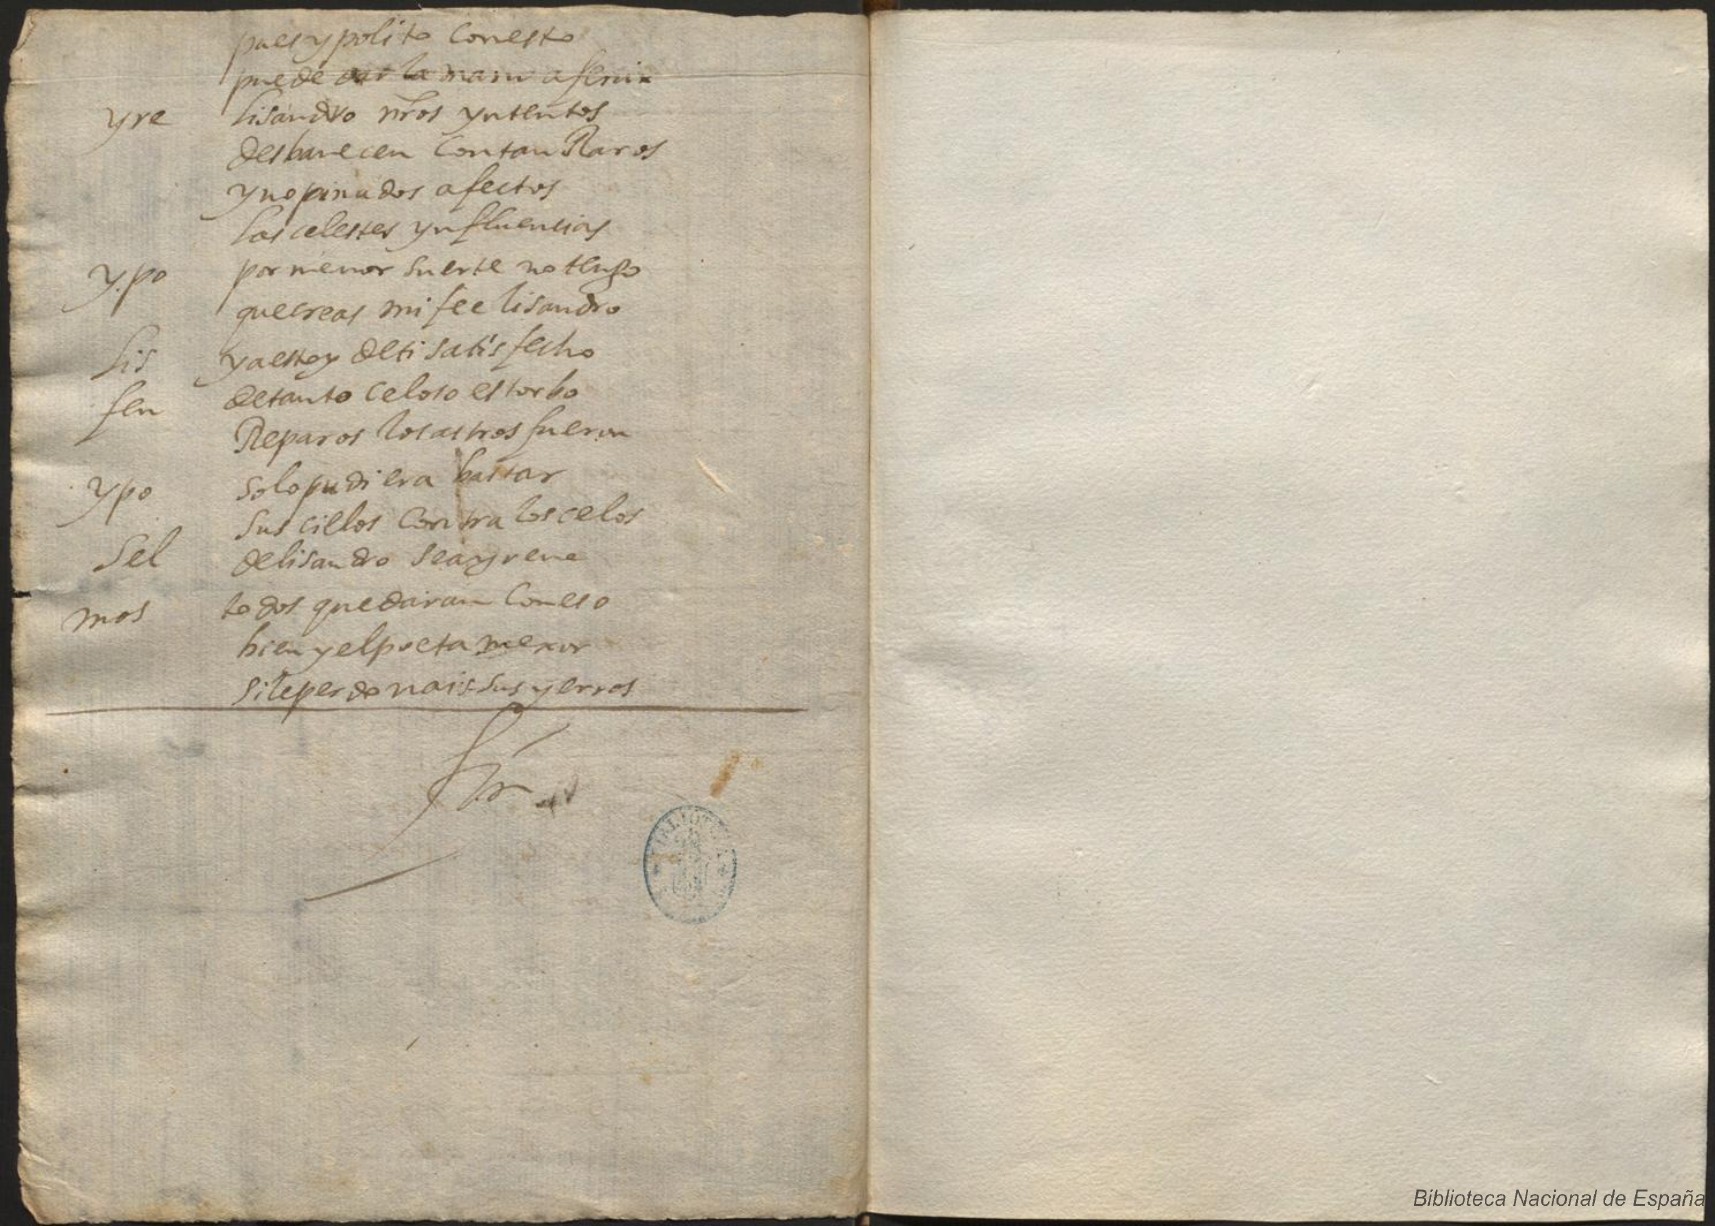 pues ypolito Con esto
puede dar la mano a fenix
yre lisandro nros yntentos
desbanecen Con tan Raros
ynopinados afectos
las celestes ynfluencias
ypo por menor suerte no tengo
que creas mi fee lisandro
lis ya estoy de ti satisfecho
fen de tanto celoso estorbo
Reparos los astros fueron
ypo solo pudiera bastar
sus cillos Contra los celos
sel de lisandro sea yrene
mos todos quedaran Con eso
bien y el poeta mexor
si le perdonais sus yerros
fin
BIBLIOTECA
Biblioteca Nacional de España